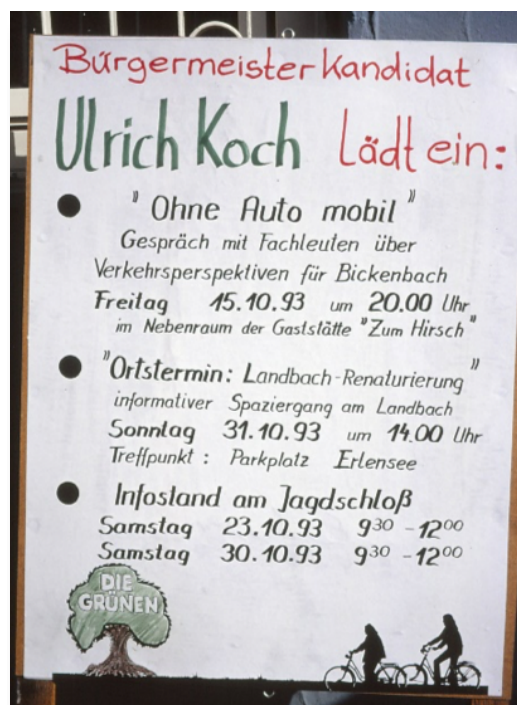 Bürgermeister Kandidat
Ulrich Koch Lädt ein:
● "Ohne Auto mobil"
Gespräch mit Fachleuten über
Verkehrsperspektiven für Bickenbach
Freitag 15.10.93 um 20.00 Uhr
im Nebenraum der Gaststätte "Zum Hirsch"
● "Ortstermin: Landbach-Renaturierung"
informativer Spaziergang am Landbach
Sonntag 31.10.93 um 14.00 Uhr
Treffpunkt: Parkplatz Erlensee
● Infostand am Jagdschloß
Samstag 23.10.93 9³⁰ - 12⁰⁰
Samstag 30.10.93 9³⁰ - 12⁰⁰
DIE
GRÜNEN